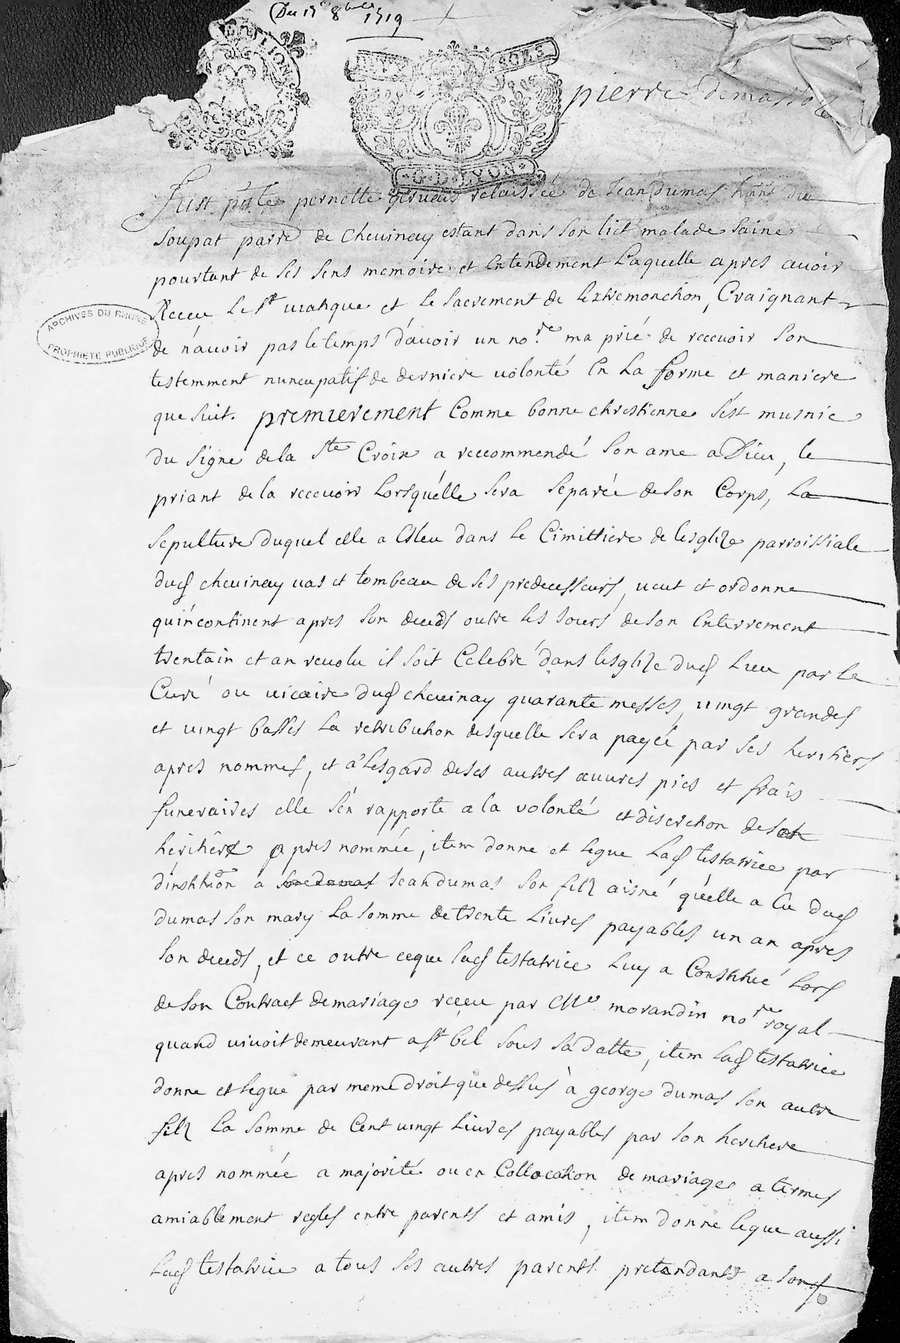 Du 15e 8bre 1719
G. D. LYON
pierre demasso
Fust pnte pernette giraud relaissée de Jean dumas hant du
Soupat parre de chevinay estant dans son lict malade saine
pourtant de ses sens memoire et Entendement Laquelle apres avoir
Receu le st viatique et le sacrement de lextremonction, Craignant
ARCHIVES DU RHONE
PROPRIETE PUBLIQUE
de n'avoir pas le temps d'avoir un nore. ma prié de recevoir son
testemment nuncupatif de derniere volonté En la forme et maniere
que suit. premierement Comme bonne chrestienne s'est munie
du signe de la Ste Croix a reccommendé son ame a Dieu, le
priant de la recevoir Lorsqu'elle sera separée de son Corps, La
sepulture duquel elle a Esleu dans le Cimittiere de lesglize parroissiale
dud chevinay vas et tombeau de ses predecesseurs, veut et ordonne
qu'incontinent apres son deceds outre les jours de son Enterrement
trentain et an revolu il soit Celebré dans lesglize dud Lieu par le
Curé ou vicaire dud chevinay quarante messes, vingt grandes
et vingt basses La retribution desquelle sera payée par ses heritiers
apres nommes, et a l'esgard de ses autres œuvres pies et frais
funeraires elle s'en rapporte a la volonté et discretion de son
heritiere apres nommée, item donne et legue Lad testatrice par
dinstitution a Jean dumas son filz aisné qu'elle a Eu dud
dumas son mary La somme de trente Livres payables un an apres
son deceds, et ce outre ceque lad testatrice Luy a Constitué Lors
de son Contract demariage receu par Me morandin nore royal
quand vivoit demeurant a st bel sous sa datte, item lad testatrice
donne et legue par meme droit que dessus à george dumas son autre
filz La somme de Cent vingt Livres payables par son heritiere
apres nommée a majorité ou en Collocation de mariage a termes
amiablement regles entre parents et amis, item donne legue aussi
Lad testatrice a tous ses autres parents pretendants a sond